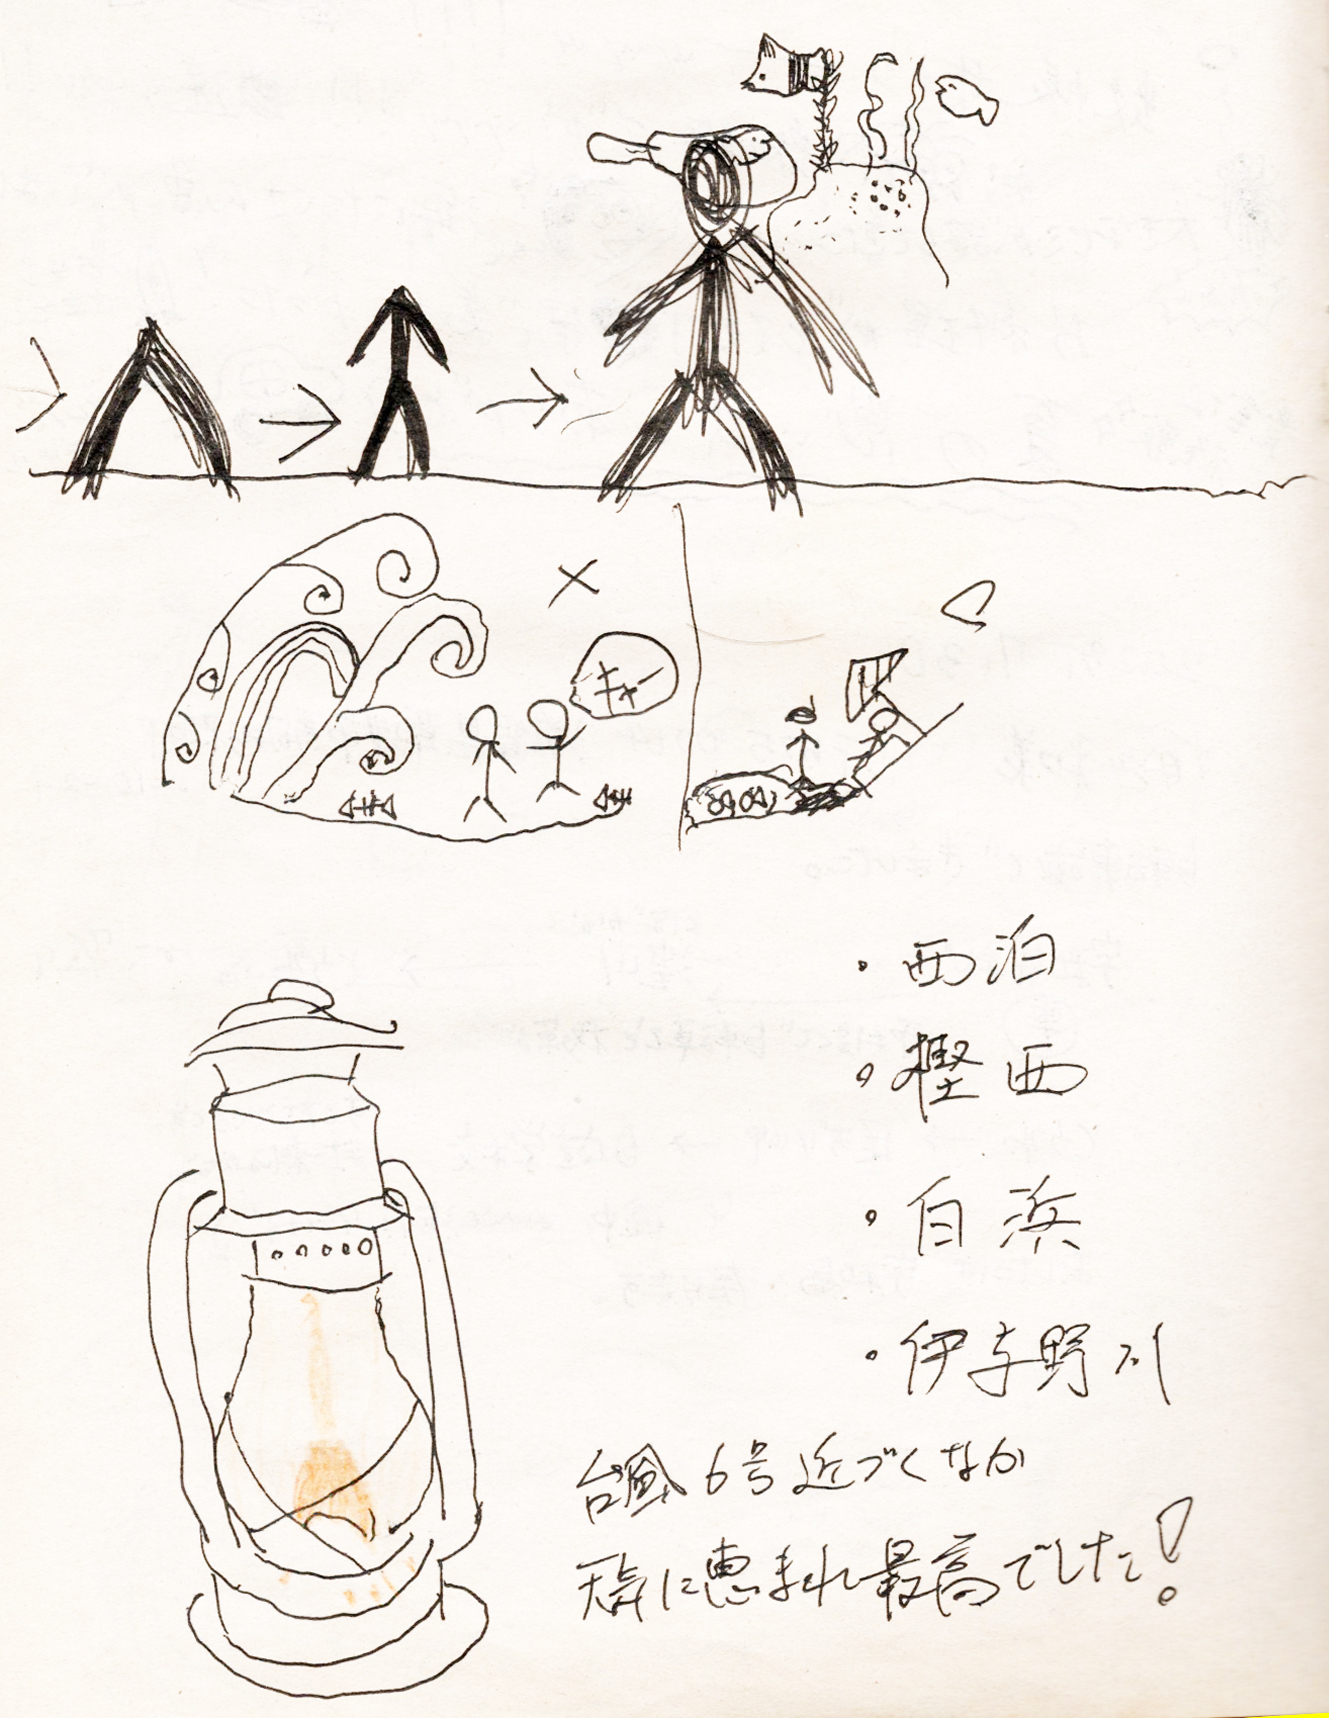 キャー
・西泊
・樫西
・白浜
・伊与野川
台風6号近づくなか
天気に恵まれ最高でした!